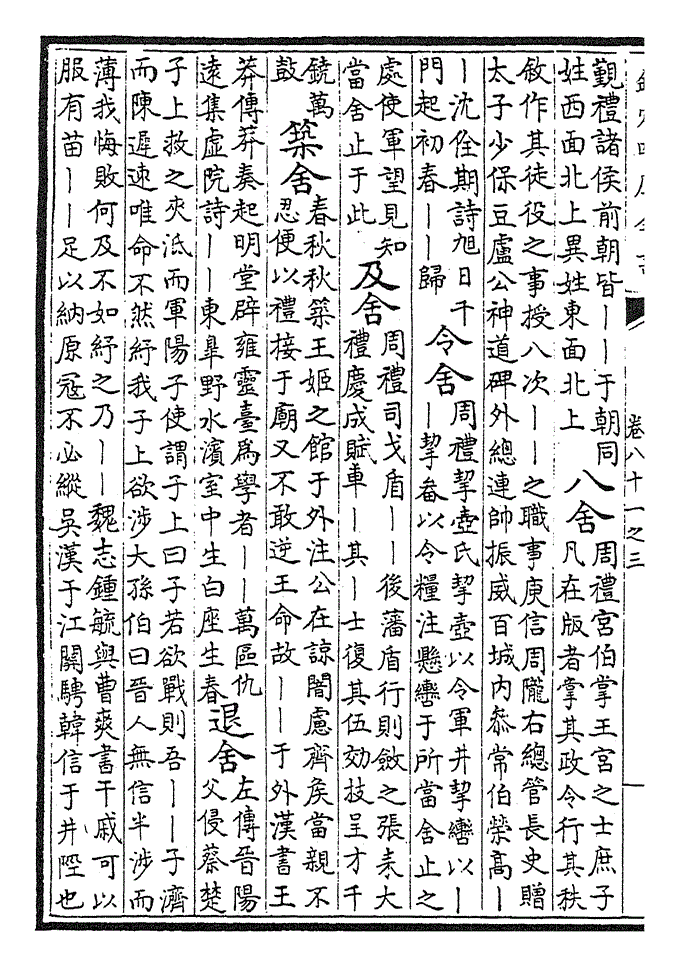 卷八十一之三
覲禮諸侯前朝皆丨丨于朝同
姓西面北上異姓東面北上
八舍
周禮宮伯掌王宮之士庶子
凡在版者掌其政令行其秩
敘作其徒役之事授八次丨丨之職事庾信周隴右總管長史贈
太子少保豆盧公神道碑外總連帥振威百城内叅常伯榮高丨
丨沈佺期詩旭日千
門起初春丨丨歸
令舍
周禮挈壺氏挈壺以令軍井挈轡以丨
丨挈畚以令糧注懸轡于所當舍止之
處使軍望見知
當舍止于此
及舍
周禮司戈盾丨丨後藩盾行則斂之張耒大
禮慶成賦車丨其丨士復其伍効技呈才千
鐃萬
鼓
築舍
春秋秋築王姬之館于外注公在諒闇慮齊侯當親不
忍便以禮接于廟又不敢逆王命故丨丨于外漢書王
莽傳莽奏起明堂辟雍靈臺爲學者丨丨萬區仇
遠集虛院詩丨丨東臯野水濱室中生白座生春
退舍
左傳晉陽
父侵蔡楚
子上救之夾泜而軍陽子使謂子上曰子若欲戰則吾丨丨子濟
而陳遲速唯命不然紓我子上欲涉大孫伯曰晉人無信半涉而
薄我悔敗何及不如紓之乃丨丨魏志鍾毓與曹爽書干戚可以
服有苗丨丨足以納原冦不必縱吳漢于江關騁韓信于井陘也